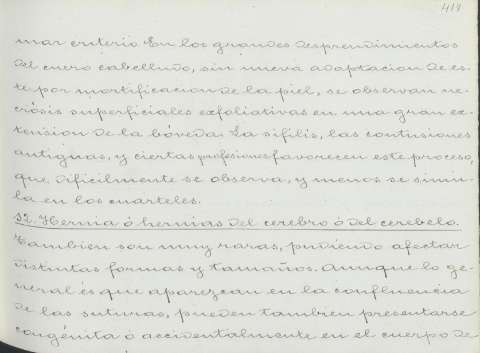 419
mar criterio En los grandes desprendimientos
del cuero cabelludo, sin nueva adaptacion de es-
te por mortificacion de la piel, se observan ne-
crósis superficiales exfoliativas en una gran ex-
tension de la bóveda. La sifilis, las contusiones
antiguas, y ciertas profesiones favorecen este proceso,
que dificilmente se observa, y menos se simu-
la en los cuarteles.
52. Hernia ó hernias del cerebro ó del cerebelo.
Tambien son muy raras, pudiendo afectar
distintas formas y tamaños. Aunque lo ge-
neral és que aparezcan en la confluencia
de las suturas, pueden tambien presentarse
congénita ó accidentalmente en el cuerpo de